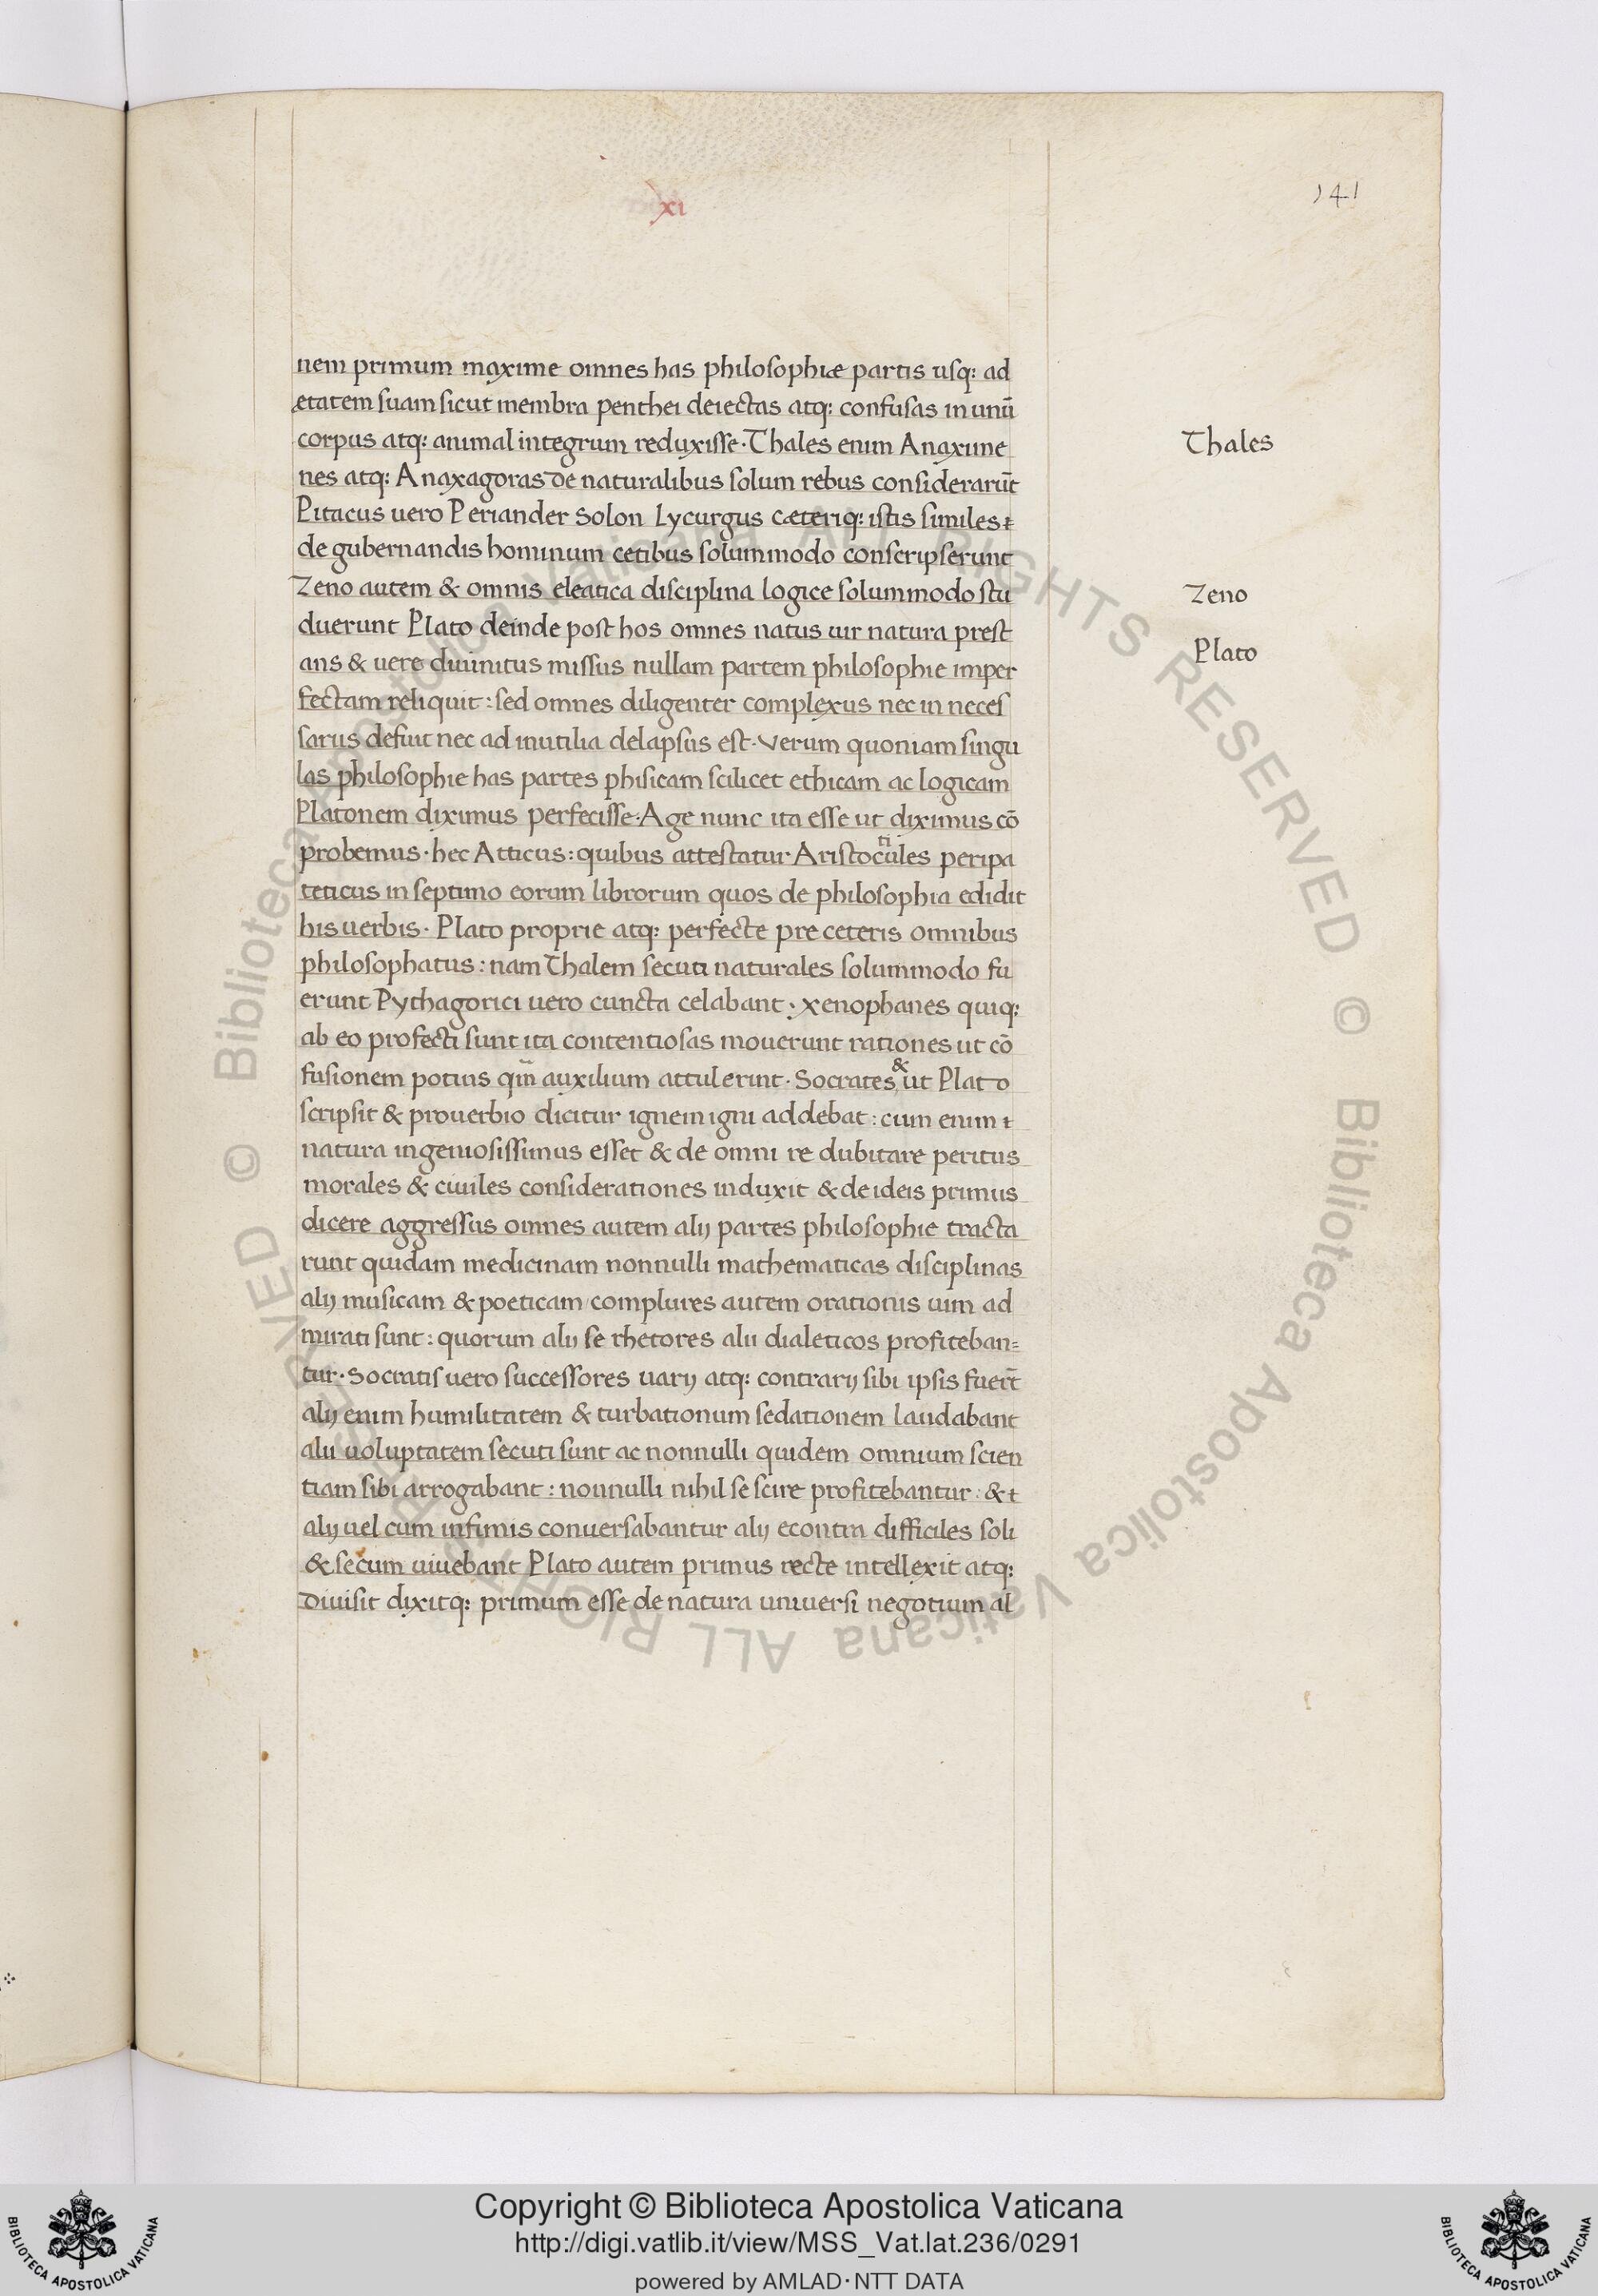 xi
141
nem primum maxime omnes has philosophiæ partis usq: ad
ętatem suam sicut membra penthei deiectas atq: confusas in unū
corpus atq: animal integrum reduxisse · Thales enim Anaxime
nes atq: Anaxagoras de naturalibus solum rebus considerarūt
Pitacus uero Periander Solon Lycurgus cæteriq: istis similes
de gubernandis hominum cetibus solummodo conscripserunt
Zeno autem & omnis eleatica disciplina logice solummodo stu
duerunt Plato deinde post hos omnes natus uir natura prest
ans & uere diuinitus missus nullam partem philosophie imper
fectam reliquit : sed omnes diligenter complexus nec in neces
sariis defuit nec ad inutilia delapsus est · Verum quoniam singu
las philosophie has partes phisicam scilicet ethicam ac logicam
Platonem diximus perfecisse · Age nunc ita esse ut diximus cō
probemus · hec Atticus : quibus attestatur Aristocules peripa
ti
teticus in septimo eorum librorum quos de philosophia edidit
his uerbis · Plato proprie atq: perfecte pre ceteris omnibus
philosophatus : nam Thalem secuti naturales solummodo fu
erunt Pythagorici uero cuncta celabant · Xenophanes quiq:
ab eo profecti sunt ita contentiosas mouerunt rationes ut cō
fusionem potius qm̄ auxilium attulerint · Socrates & ut Plato
scripsit & prouerbio dicitur ignem igni addebat : cum enim
natura ingeniosissimus esset & de omni re dubitare peritus
morales & ciuiles considerationes induxit & de ideis primus
dicere aggressus omnes autem alij partes philosophie tracta
runt quidam medicinam nonnulli mathematicas disciplinas
alij musicam & poeticam complures autem orationis uim ad
mirati sunt : quorum alij se rhetores alii dialeticos profiteban=
tur · Socratis uero successores uarij atq: contrarij sibi ipsis fuer̄t
alij enim humilitatem & turbationum sedationem laudabant
alii uoluptatem secuti sunt ac nonnulli quidem omnium scien
tiam sibi arrogabant : nonnulli nihil se scire profitebantur : &
alij uel cum infimis conuersabantur alij econtra difficiles soli
& secum uiuebant Plato autem primus recte intellexit atq:
diuisit dixitq: primum esse de natura uniuersi negotium al
Thales
Zeno
Plato
© Biblioteca Apostolica Vaticana ALL RIGHTS RESERVED © Biblioteca Apostolica Vaticana ALL RIGHTS RESERVED
BIBLIOTECA APOSTOLICA VATICANA
Copyright © Biblioteca Apostolica Vaticana
http://digi.vatlib.it/view/MSS_Vat.lat.236/0291
powered by AMLAD·NTT DATA
BIBLIOTECA APOSTOLICA VATICANA